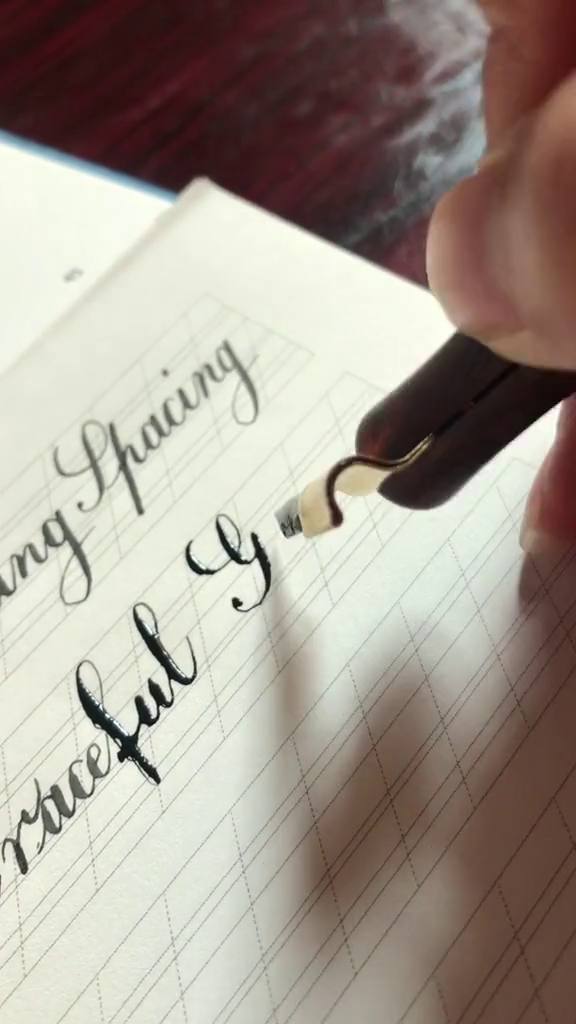 ing Spacing
raceful G